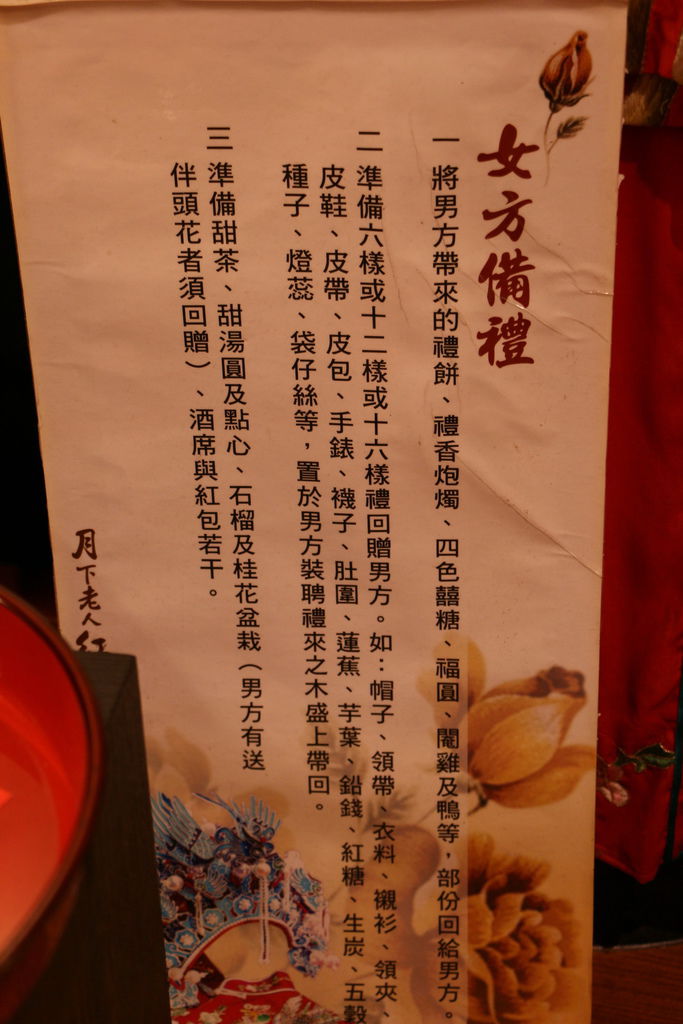 女方備禮
一 將男方帶來的禮餅、禮香炮燭、四色囍糖、福圓、閹雞及鴨等，部份回給男方。
二 準備六樣或十二樣或十六樣禮回贈男方。如：帽子、領帶、衣料、襯衫、領夾、
皮鞋、皮帶、皮包、手錶、襪子、肚圍、蓮蕉、芋葉、鉛錢、紅糖、生炭、五穀
種子、燈蕊、袋仔絲等，置於男方裝聘禮來之木盛上帶回。
三 準備甜茶、甜湯圓及點心、石榴及桂花盆栽（男方有送
伴頭花者須回贈）、酒席與紅包若干。
月下老人紅